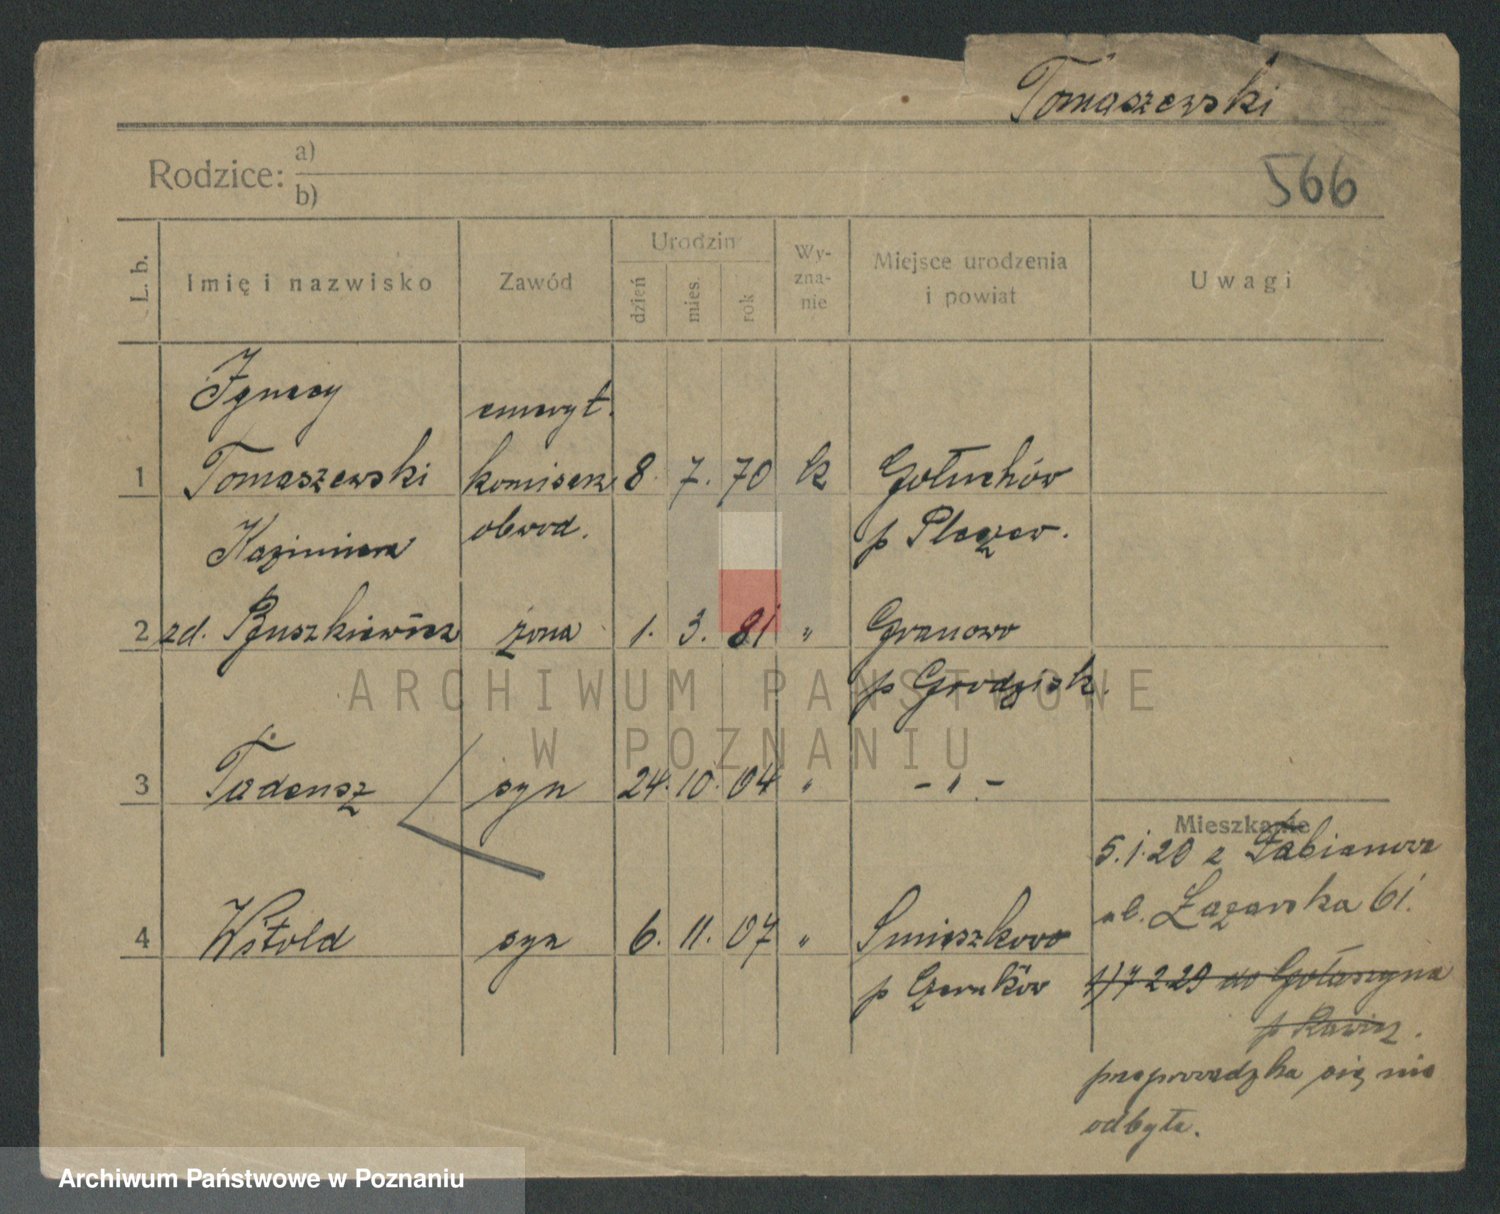 Tomaszewski
Rodzice: a)
b)
566
L. b.
Imię i nazwisko
Zawód
Urodzin
dzień
mies.
rok
Wy-
zna-
nie
Miejsce urodzenia
i powiat
Uwagi
Ignacy
emeryt.
1 Tomaszewski komisarz 8. 7. 70 k Gołuchów
obwod. p Pleszew.
Kazimiera
2 zd. żona 1. 3. 81 " Granowo
p Grodzisk.
3 Tadeusz syn 24. 10. 04 " - " -
Mieszkanie
5.1.20 z Fabianowa
ul. Łazarska 61.
4 Witold syn 6. 11. 07 " Śmieszkowo
p Czarnków
1) 7 2 29 do Gołaszyna
p Rawicz.
przeprowadzka się nie
odbyła.
ARCHIWUM PAŃSTWOWE
W POZNANIU
Archiwum Państwowe w Poznaniu